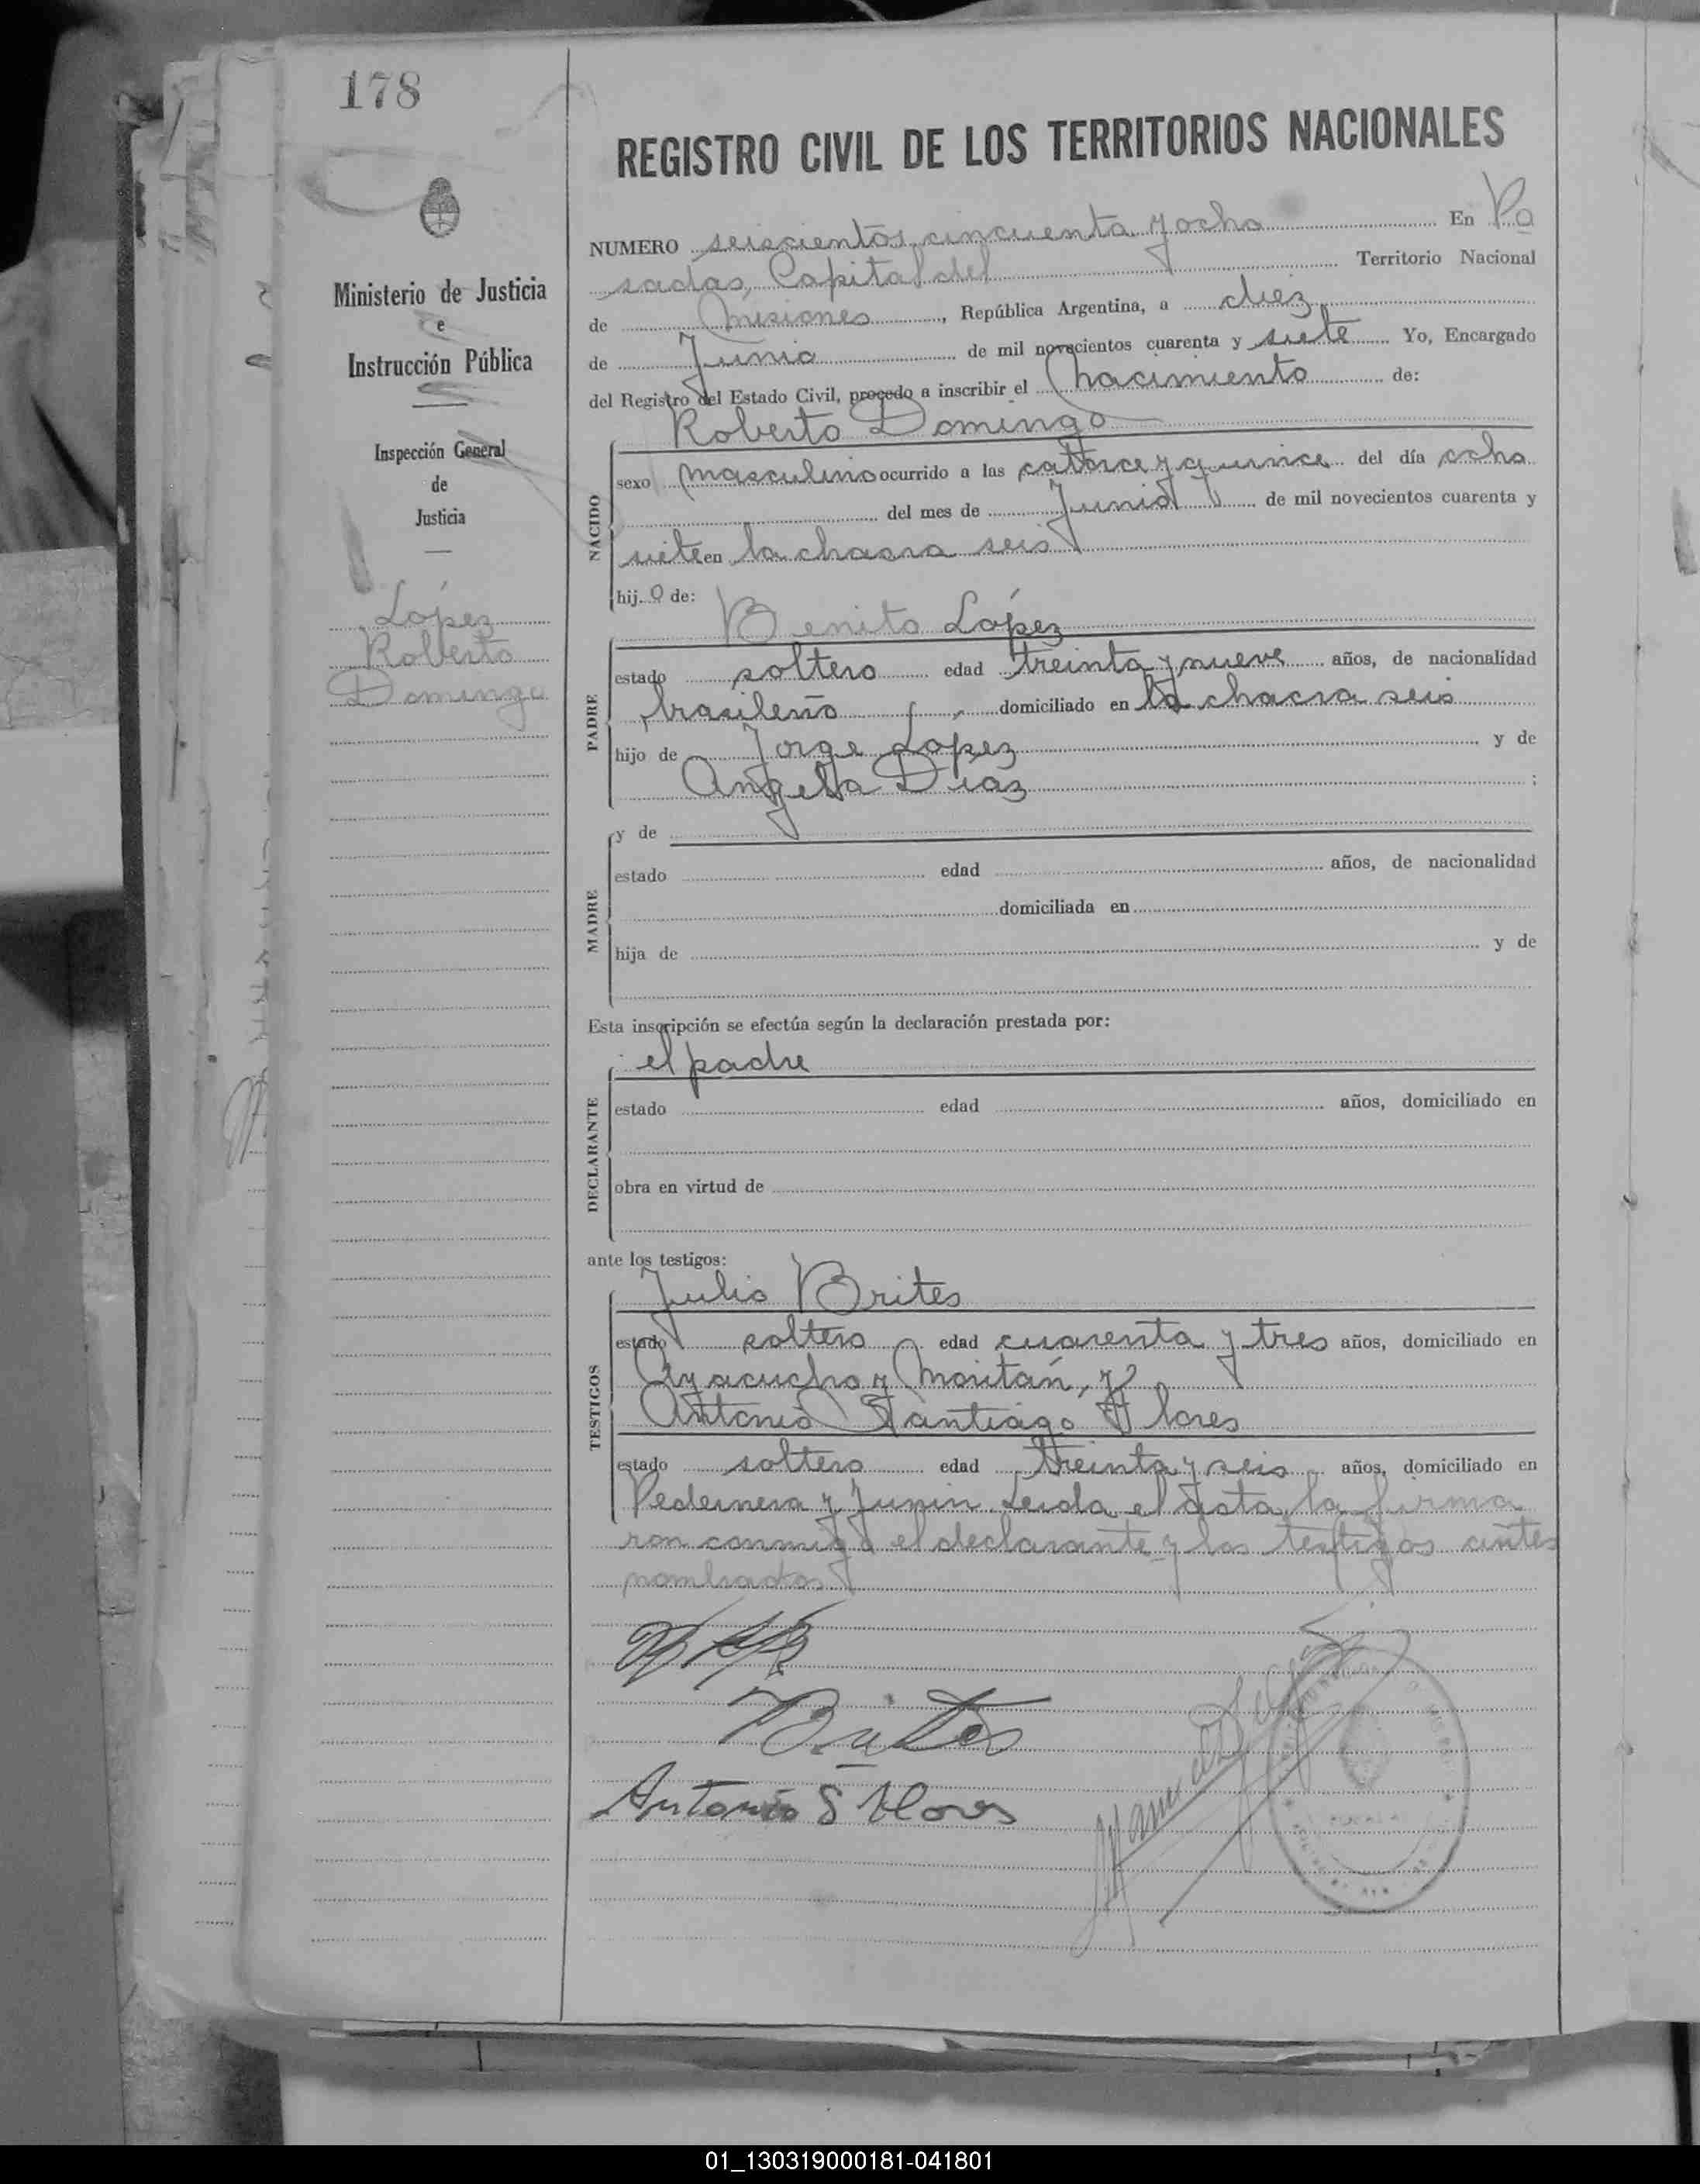 178
REGISTRO CIVIL DE LOS TERRITORIOS NACIONALES
Ministerio de Justicia
e
Instrucción Pública
Inspección General
de
Justicia
López
Roberto
Domingo
NUMERO seiscientos cincuenta y ocho En Po
sadas, Capital del Territorio Nacional
de Misiones, República Argentina, a diez
de Junio de mil novecientos cuarenta y siete Yo, Encargado
del Registro del Estado Civil, procedo a inscribir el nacimiento de:
Roberto Domingo
NACIDO
sexo masculino ocurrido a las catorce y quince del día ocho
del mes de Junio de mil novecientos cuarenta y
siete en la chacra seis
hijo de:
Benito López
PADRE
estado soltero edad treinta y nueve años, de nacionalidad
brasileño domiciliado en la chacra seis
hijo de Jorge López y de
Angela Díaz ;
y de
MADRE
estado edad años, de nacionalidad
domiciliada en
hija de y de
Esta inscripción se efectúa según la declaración prestada por:
el padre
DECLARANTE
estado edad años, domiciliado en
obra en virtud de
ante los testigos:
Julio Brites
TESTIGOS
estado soltero edad cuarenta y tres años, domiciliado en
Ayacucho y Moritán, y
Antonio Santiago Flores
estado soltero edad treinta y seis años, domiciliado en
Pedernera y Junin Leida el acta, la firma
ron conmigo el declarante y los testigos antes
nombrados
Brites
Antonio S Flores
01_130319000181-041801